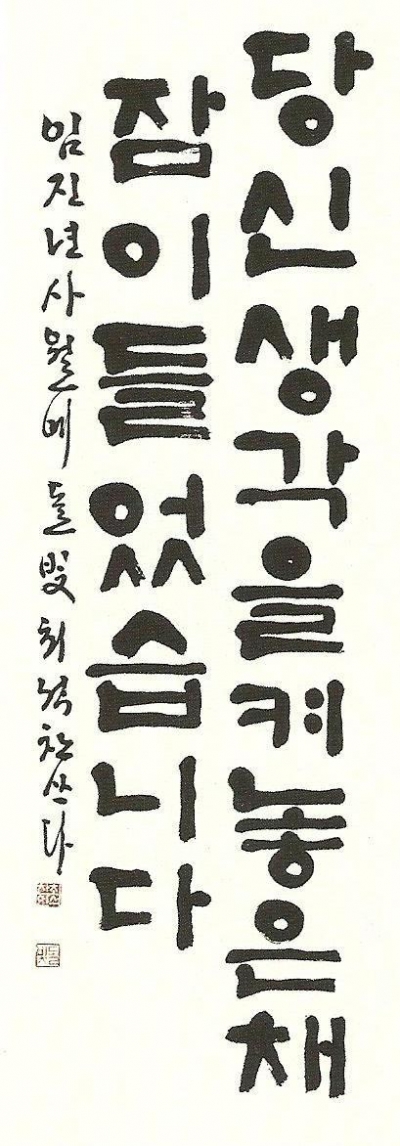 당신생각을켜놓은채
잠이들었습니다
임진년사월에 최석찬쓰다